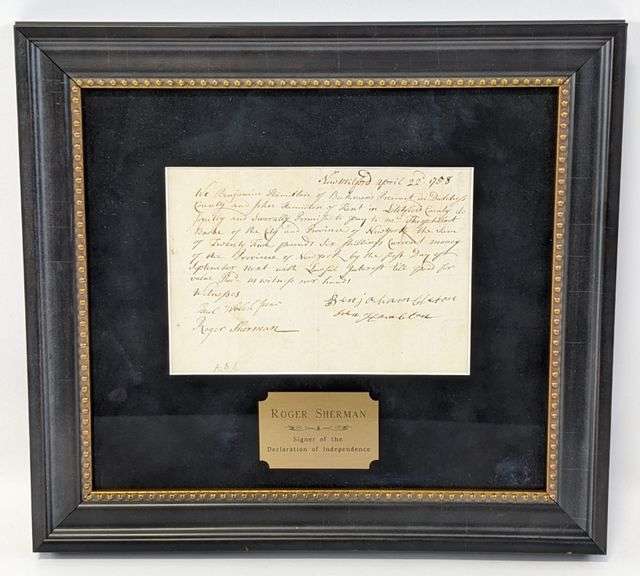 New Milford April 22d 1758
We Benjamin Hamilton of in Dutchess
County and John Hamilton of Kent in Litchford County do
Joyntly and Severally Promise to pay to mr. Theophilact
Bache of the City and Province of Newyork the Sum
of Twenty pounds Six Shillings Current money
of the Province of Newyork by the first Day of
September next with Lawful Interest till paid for
value Recd. as witness our hands
Witnesses
Paul Welch Junr
Roger Sherman
Benjaham
John Hamilton
ROGER SHERMAN
Signer of the
Declaration of Independence